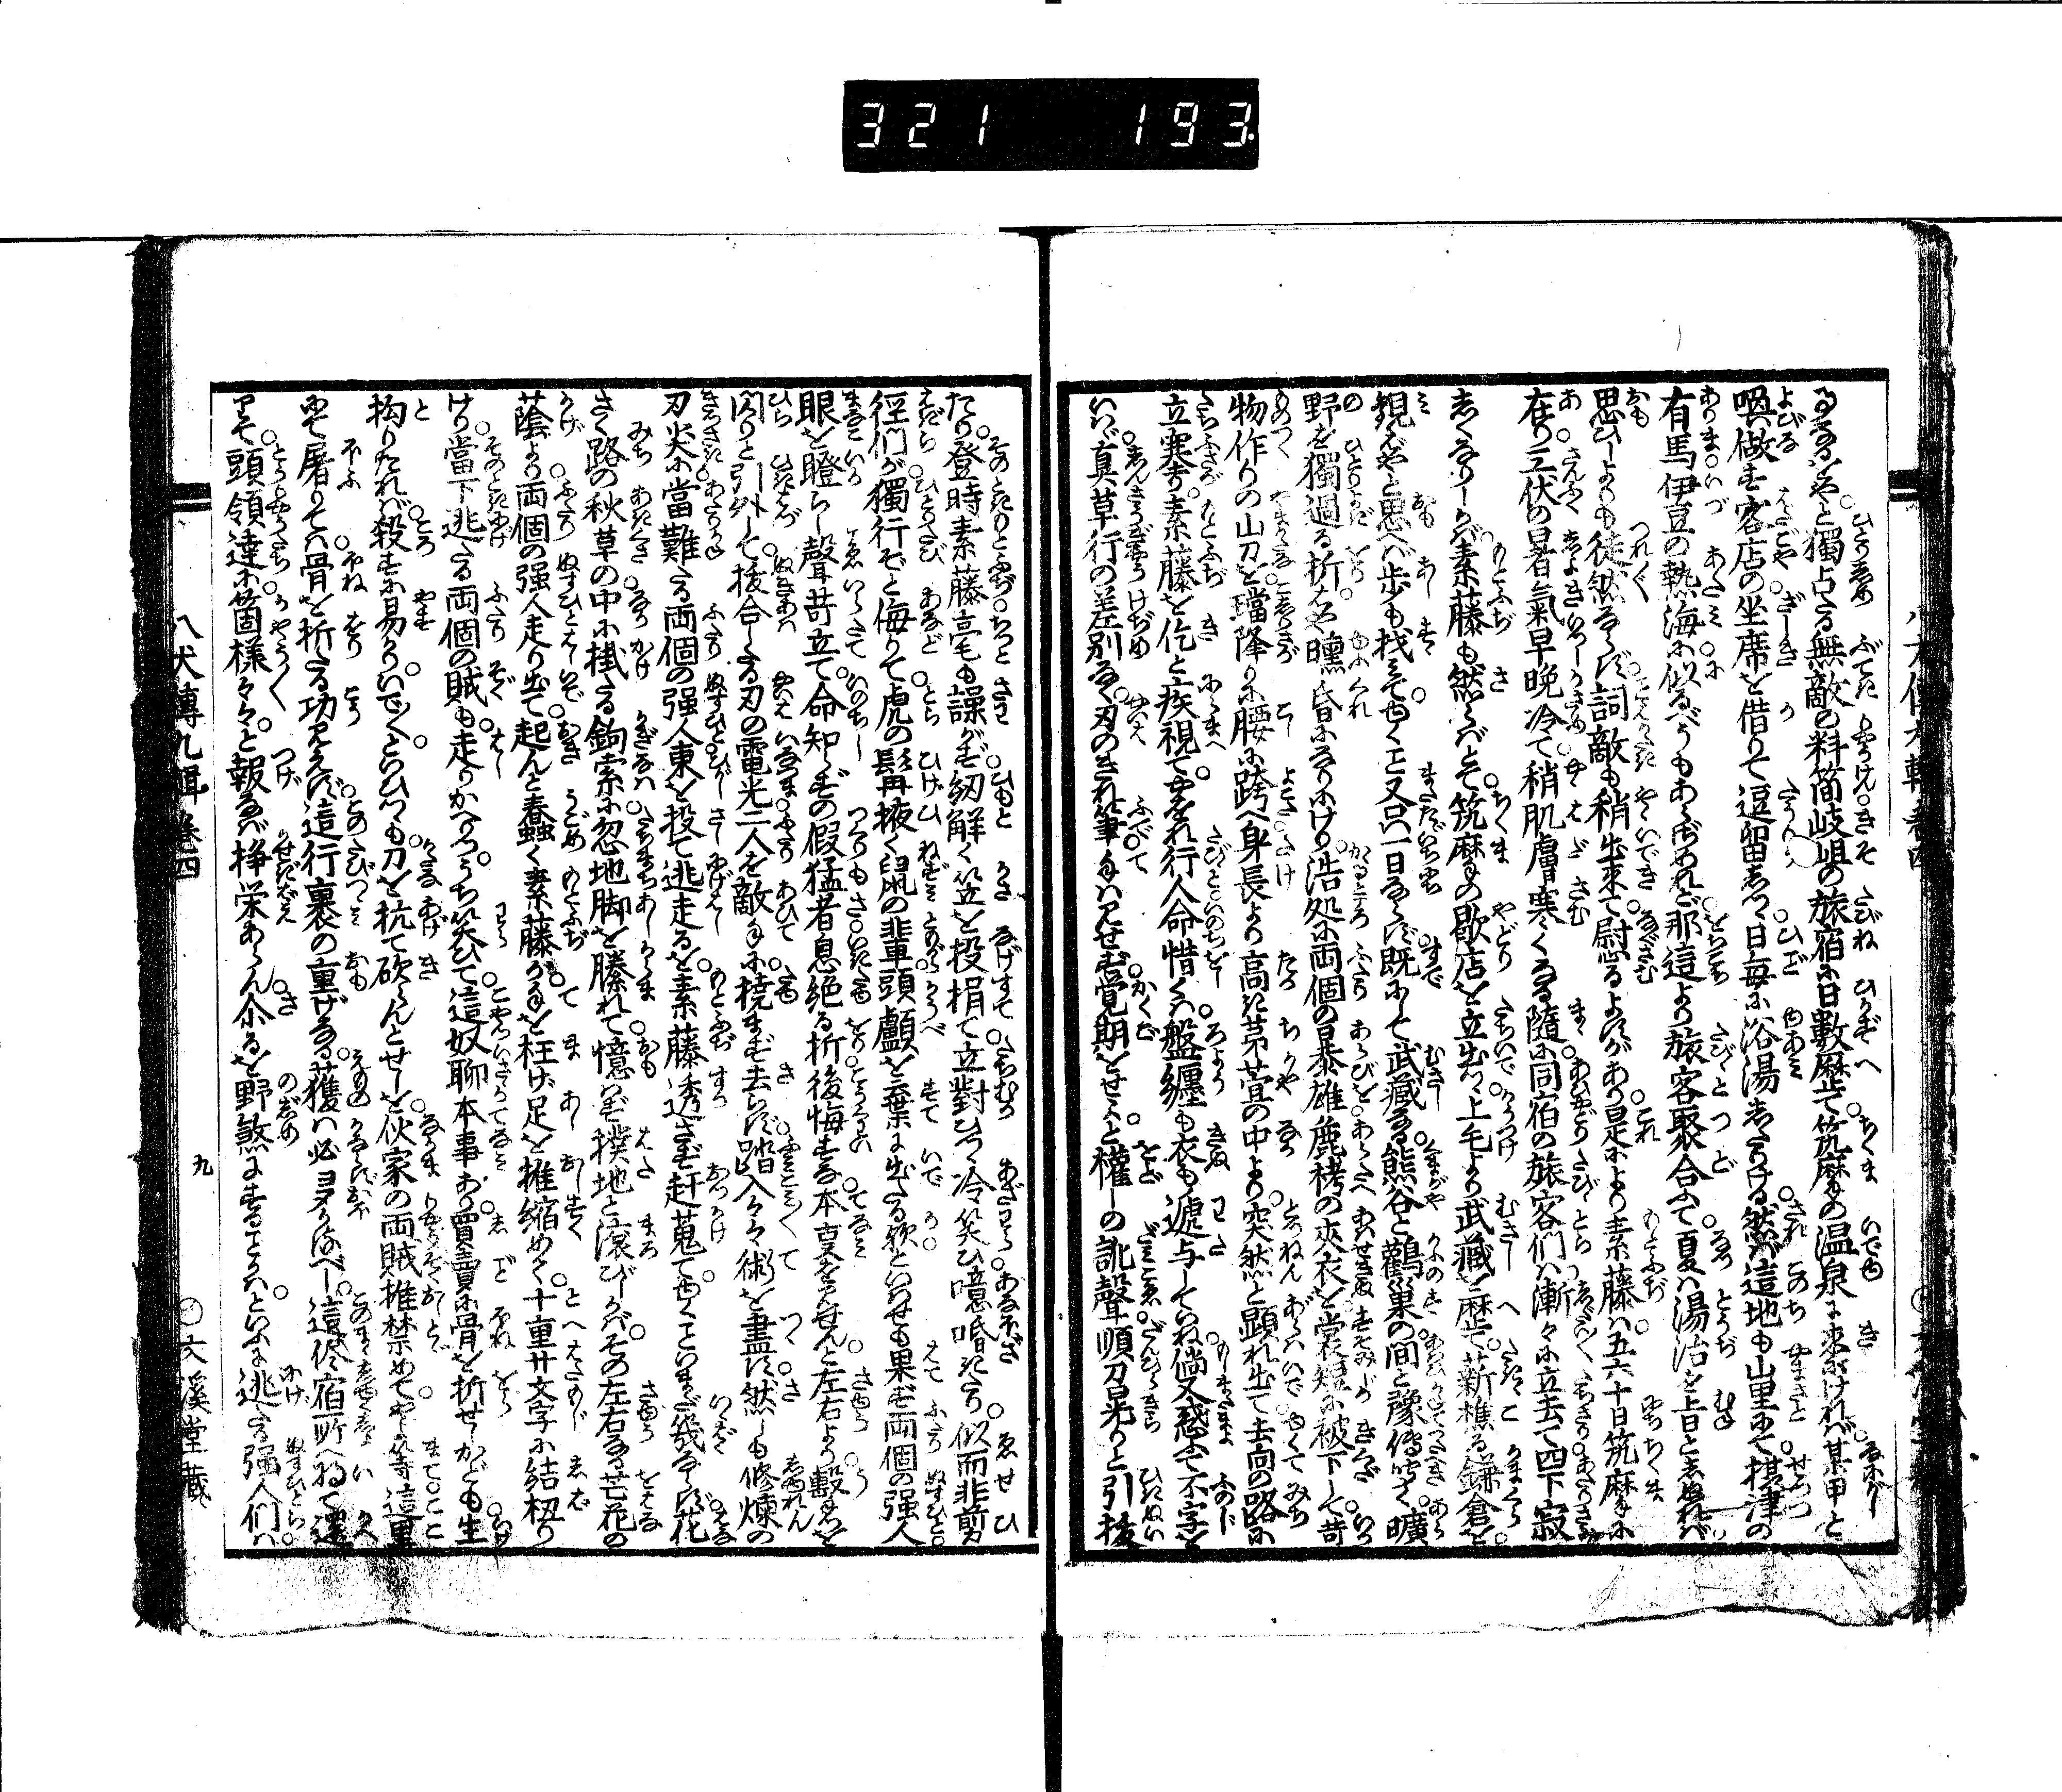 321 193
なるよしやと獨占たる無敵の料簡岐岨の旅宿に日數歴て筑摩の温泉に来にければ某甲と
喚做す客店の坐席を借りて逗留しつゝ日毎に浴湯したりける然ば這地も山里にて摂津の
有馬伊豆の熱海に似るべうもあらざめれど那這より旅客聚合ふて夏は湯治を上日としぬれば
思ひしよりも徒然ならず詞敵も稍出来て慰るよすがあり是により素藤は五六十日筑摩に
在り三伏の暑氣早晩冷て稍肌膚寒くなる隨に同宿の旅客們は漸々に立去て四下寂
しくなりしらば素藤も然らばとて筑摩の歇店を立出つゝ上毛より武藏を歴て新樵る鎌倉を
観ばやと思へば歩も找みてゆくこと又只一日ならず既にして武藏なる熊谷と鸛巣の間と豫傳聞く曠
野を獨過る折しも曛昏になりにけり浩処に両個の暴雄麁栲の夾衣を裳短に被下して苛
物作りの山刀を璫降りに腰に跨へ身長より高き茅萱の中より突然と顕れ出て去向の路に
立塞り素藤を佶と疾視てやをれ行人命惜くは盤纏も衣も逓与していね倘又惑ふて不字を
いはゞ真草行の差別なく刃のきれ筆手は見せぬ覚期をせよと權しの訛聲順刀晃りと引抜
たり登時素藤毫も譟がず紐解く笠を投捐て立對ひつゝ冷笑ひ噫唔きたり似而非剪
徑們が獨行ぞと侮りて虎の髭再掖く鼠の輩頭顱を棄に出たる歟といはせも果ず両個の强人
眼を瞪らし聲苛立て命知らずの假猛者息絶る折後悔すな本事を見せんと左右より撃を
閃りと引外して抜合したる刃の電光二人を敵手に撓まず去らず踏入々々術を盡す然しも修煉の
刃尖に當難たる両個の强人東を投て逃走るを素藤透さず赶蒐てゆくこといまだ幾ならず花
さく路の秋草の中に掛たる鉤索に忽地脚を縢れて憶ず撲地と滾びしかばその左右なる芒花の
蔭より両個の强人走り出て起んと蠢く素藤が手を枉げ足を推縮めて十重廿文字に結扭り
けり當下逃たる両個の賊も走りかへりうち笑ひて這奴聊本事あり買賣に骨を折せしかども生
拘りたれば殺すに易かりいでくらひつも刀を抗て砍らんとせしを伙家の両賊推禁めてやよ等這里
にて屠りては骨を折たる功見えず這行裹の重げなる獲は必ヨタかるべし這儘宿所へ將て還
りて頭領達に箇様々々と報なば掙栄あらん尒るを野煞にすることかはといふに逃たる强人們は
八犬傳九輯 卷四
九
文溪堂藏